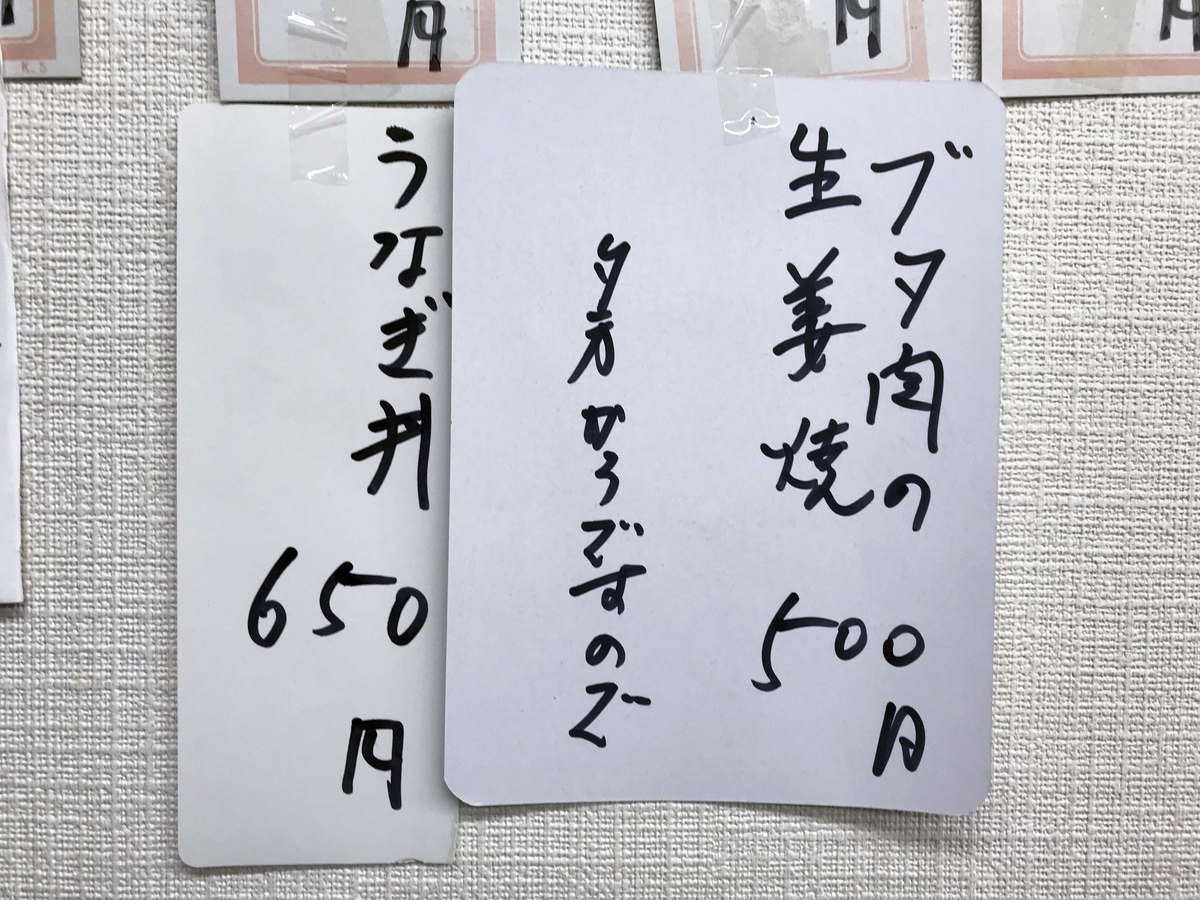 円
円
K.S
ブタ肉の
生姜焼
500
円
夕方からですので
うなぎ丼
650
円